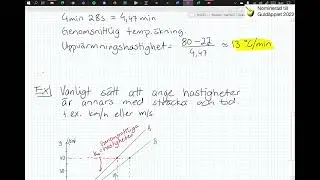 Nominerad till
Guldäpplet 2022
4 min 28s = 4,47 min
Genomsnittlig temp.ökning
Uppvärmningshastighet = 80-22 / 4,47 ≈ 13 °C/min
Ex) Vanligt sätt att ange hastigheter
är annars med sträcka och tid
t.ex. km/h eller m/s.
genomsnittliga
hastigheter